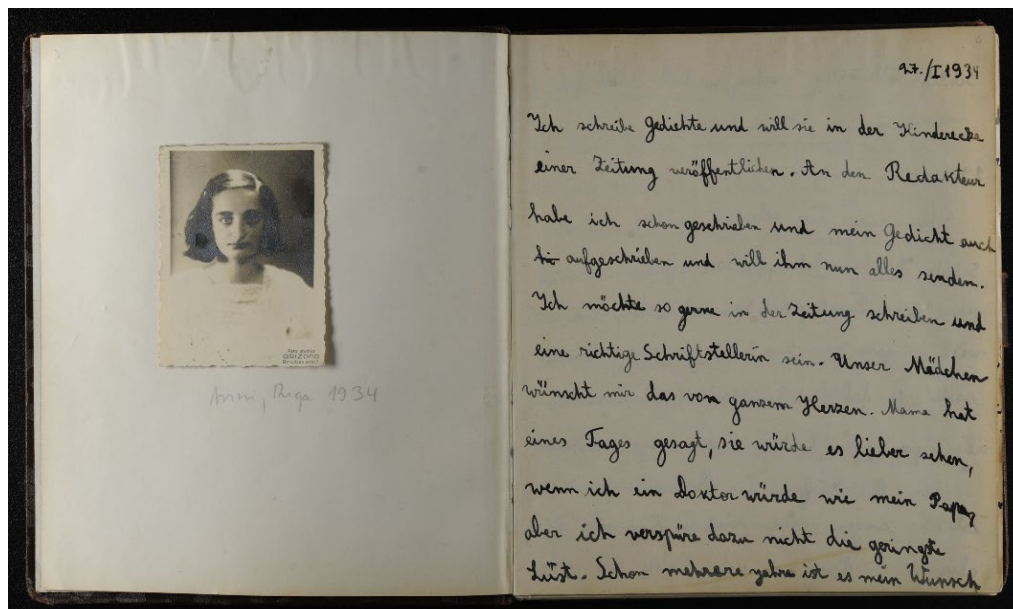 Anni, Riga 1934
27./I 1934
Ich schreibe Gedichte und will sie in der Kinderecke
einer Zeitung veröffentlichen. An den Redakteur
habe ich schon geschrieben und mein Gedicht auch
aufgeschrieben und will ihm nun alles senden.
Ich möchte so gerne in der Zeitung schreiben und
eine richtige Schriftstellerin sein. Unser Mädchen
wünscht mir das vom ganzem Herzen. Mama hat
eines Tages gesagt, sie würde es lieber sehen,
wenn ich ein Doktor würde wie mein Papa,
aber ich verspüre dazu nicht die geringste
Lust. Schon mehrere yahre ist es mein Wunsch